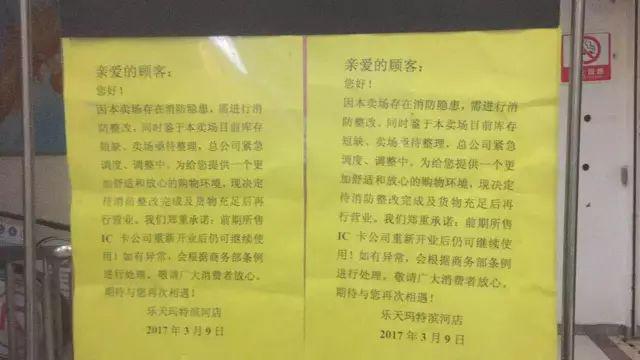 亲爱的顾客：
您好！
因本卖场存在消防隐患，需进行消
防整改，同时鉴于本卖场目前库存
短缺、卖场亟待整理，总公司紧急
调度、调整中。为给您提供一个更
加舒适和放心的购物环境，现决定
待消防整改完成及货物充足后再
行营业。我们郑重承诺：前期所售
IC 卡公司重新开业后仍可继续使
用！如有异常，会根据商务部条例
进行处理。敬请广大消费者放心。
期待与您再次相遇！
乐天玛特滨河店
2017 年 3 月 9 日
亲爱的顾客：
您好！
因本卖场存在消防隐患，需进行消
防整改，同时鉴于本卖场目前库存
短缺、卖场亟待整理，总公司紧急
调度、调整中。为给您提供一个更
加舒适和放心的购物环境，现决定
待消防整改完成及货物充足后再
行营业。我们郑重承诺：前期所售
IC 卡公司重新开业后仍可继续使
用！如有异常，会根据商务部条例
进行处理。敬请广大消费者放心。
期待与您再次相遇！
乐天玛特滨河店
2017 年 3 月 9 日